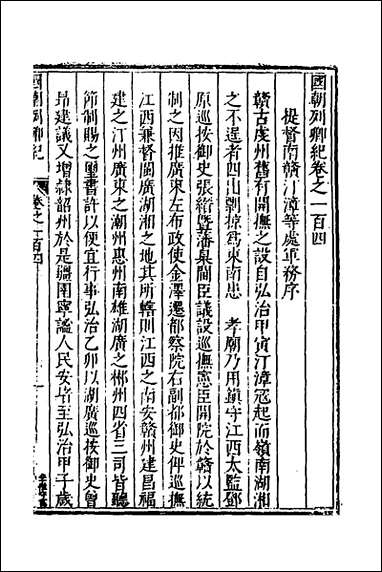 國朝列卿紀卷之一百四
提督南贛汀漳等處軍務序
贛古虔州舊有開撫之設自弘治甲寅汀漳寇起而嶺南湖湘
之不逞者四出剽掠為東南患 孝廟乃用鎮守江西太監鄧
原巡按御史張縉暨藩臬閫臣議設巡撫憲臣開院於贛以統
制之因推廣東左布政使金澤遷都察院右副都御史俾巡撫
江西兼督閩廣湖湘之地其所轄則江西之南安贛州建昌福
建之汀州廣東之潮州惠州南雄湖廣之郴州四省三司皆聽
節制賜之璽書許以便宜行事弘治乙卯以湖廣巡按御史曾
昂建議又增隸韶州於是疆圉寧謐人民安堵至弘治甲子歲
國朝列卿紀
卷之一百四